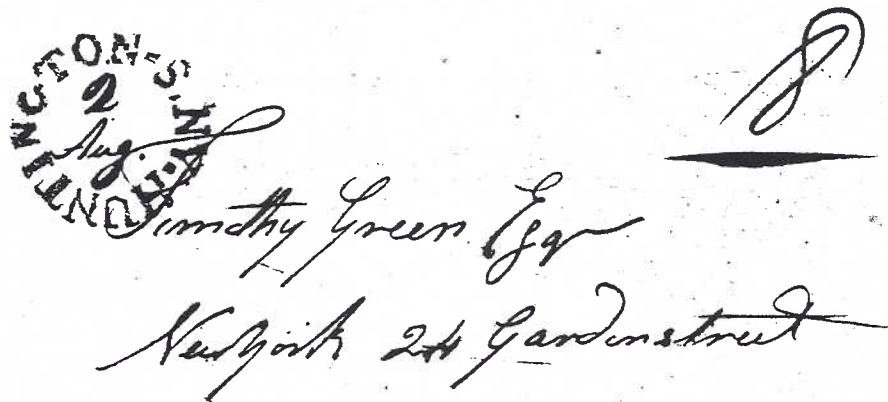 HUNTINGTON-S.N.Y.
2
Aug.
8
Timothy Green Esqr
NewYork 24 Gardenstreet